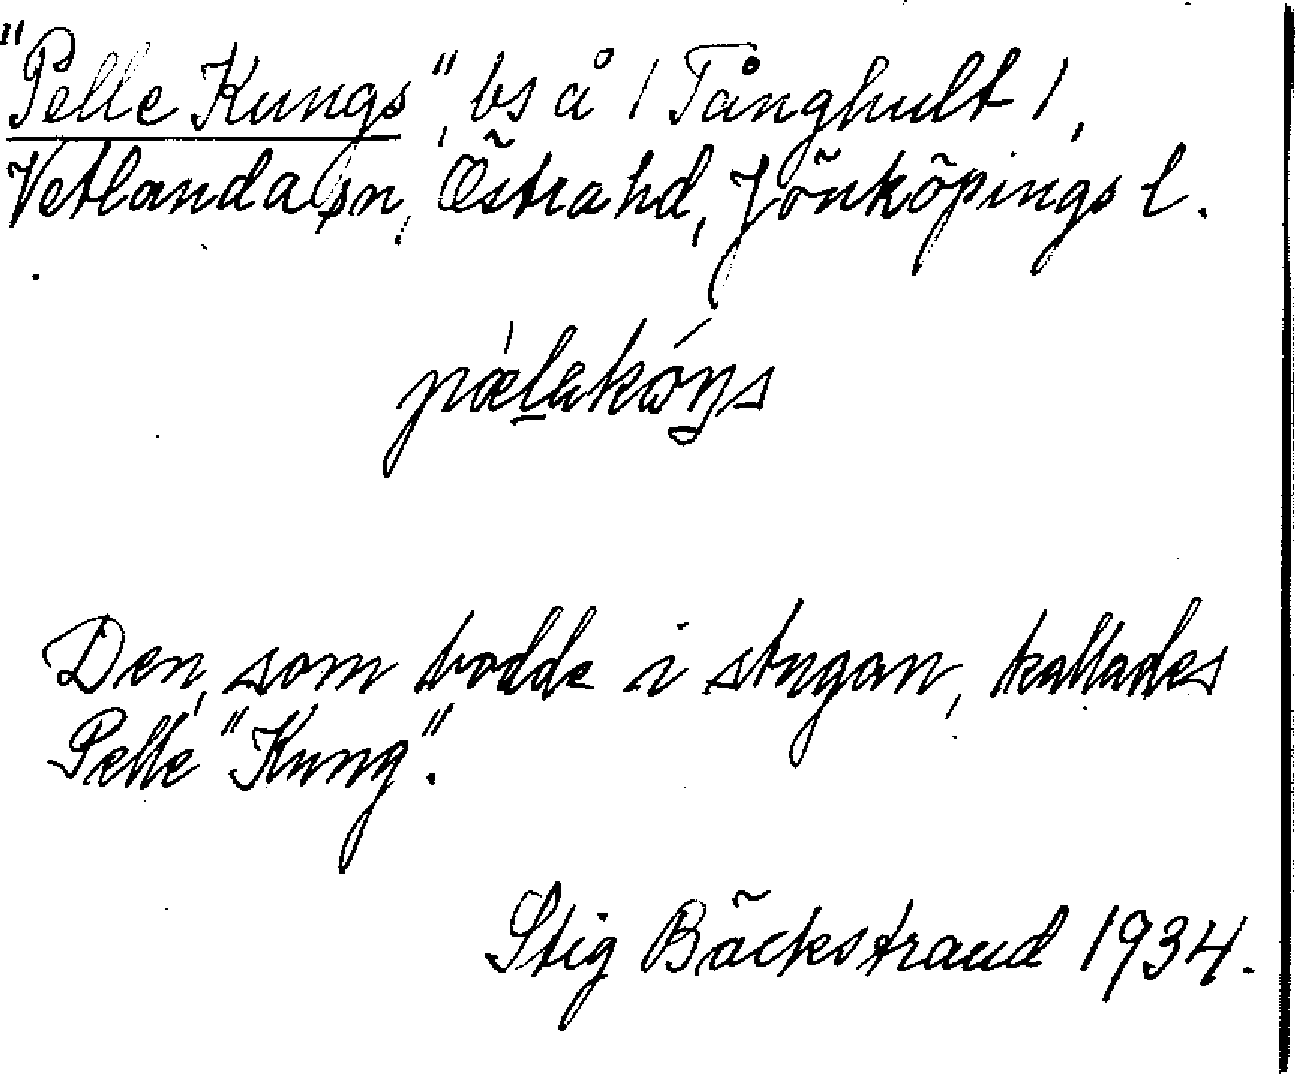 "Pelle Kungs", bs å / Tånghult /,
Vetlanda sn, Östra hd, Jönköpings l.
pæ̀lakóŋs
Den, som bodde i stugan, kallades
Pelle "Kung".
Stig Bäckstrand 1934.